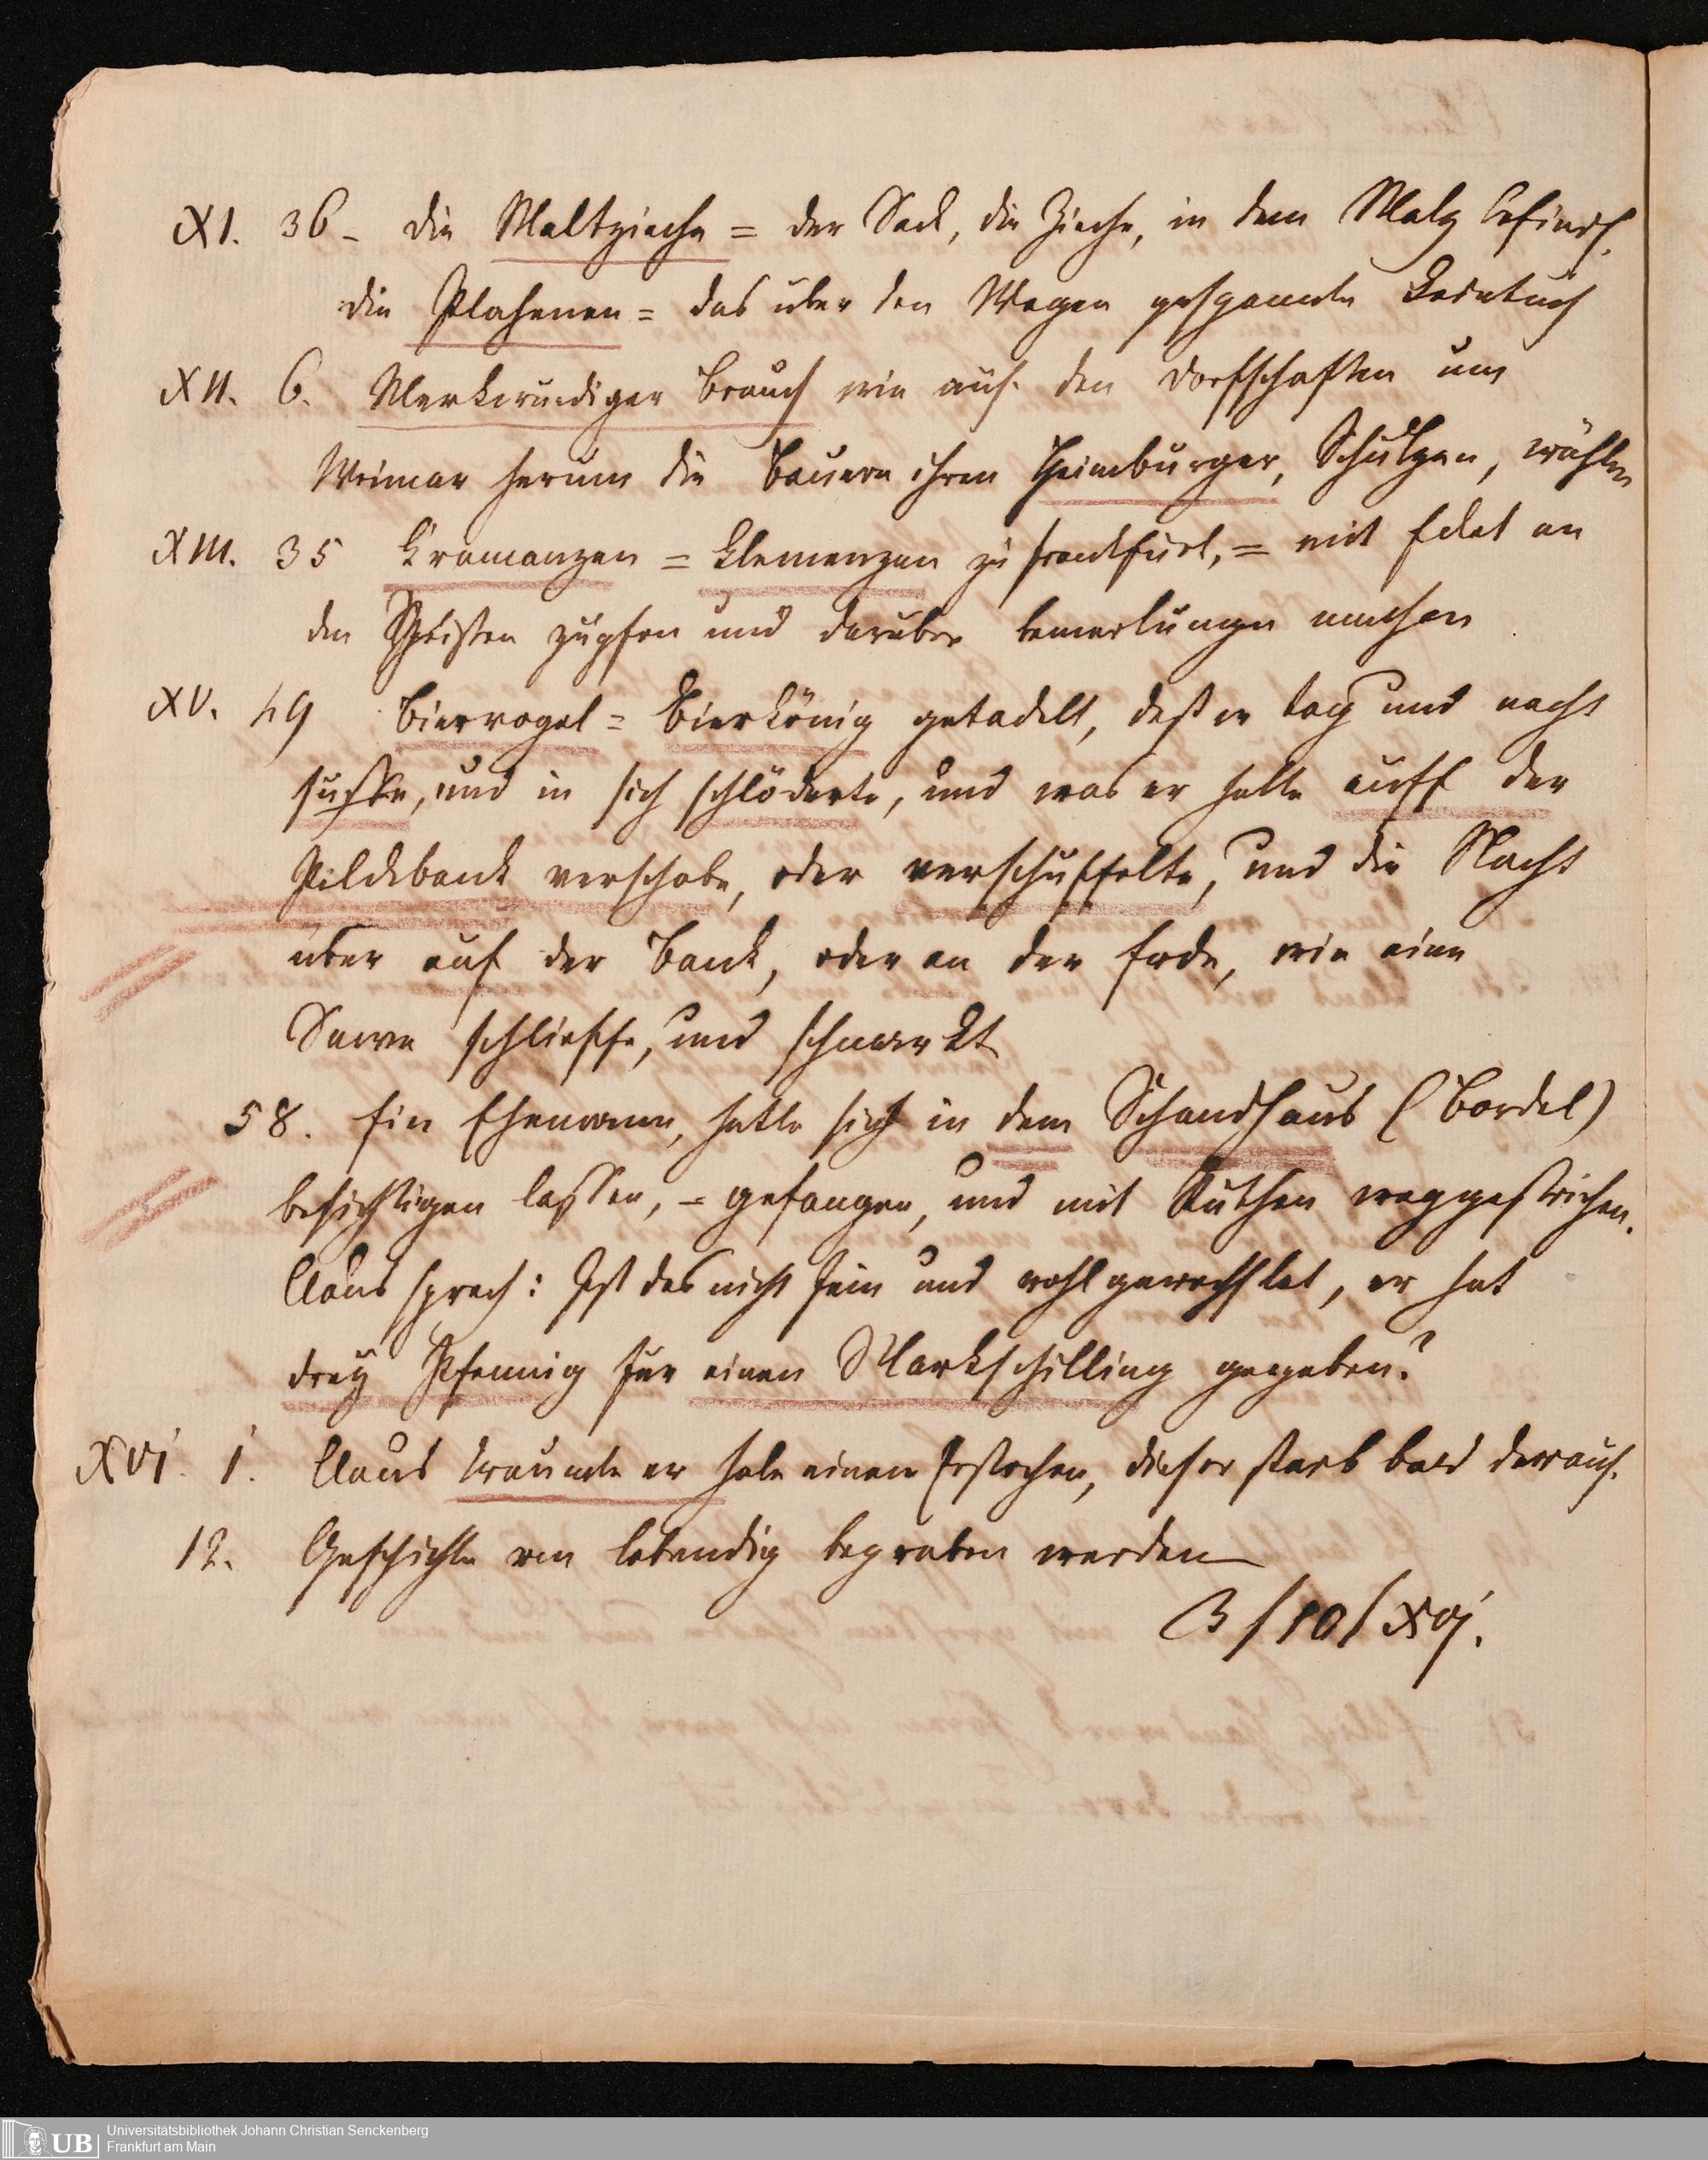 XI. 36 - die Maltzieche = der Sack, die Zieche, in dem Malz befindl.
die Plahenen = das über den Wagen gespannte Leintuch
XII. 6. Merkwürdiger Brauch wie auf den Dorfschaften um
Weimar herum die Bauern ihren Heimburger, Schulzen, wählen
XIII. 35 Kramanzen = Klemenzen zu Frankfurt, = mit Eclat an
den Speisen zupfen und darüber bemerkungen machen
XV. 49 Biervogel = Bierkönig getadelt, daß er tag und nacht
suffe, und in sich schlöderte, und was er hatte auff der
Pilckbank verschobe, oder verschuffelte, und die Nacht
über auf der Bank, oder an der Erde, wie eine
Sawe schlieffe, und schnarckt
58. Ein Ehemann, hatte sich in dem Schandhaus (Bordel)
besichtigen lassen, = gefangen, und mit Ruthen weggestrichen.
Claus sprach: Ist das nicht fein und wohl gewechslet, er hat
drey Pfennig für einen Markschilling gegeben?
XVI. 1. Claus traumte er habe einen Erstochen, dieser starb bald darauf.
12. Geschichte von lebendig begraben werden
3/10/XVj.
UB
Universitätsbibliothek Johann Christian Senckenberg
Frankfurt am Main